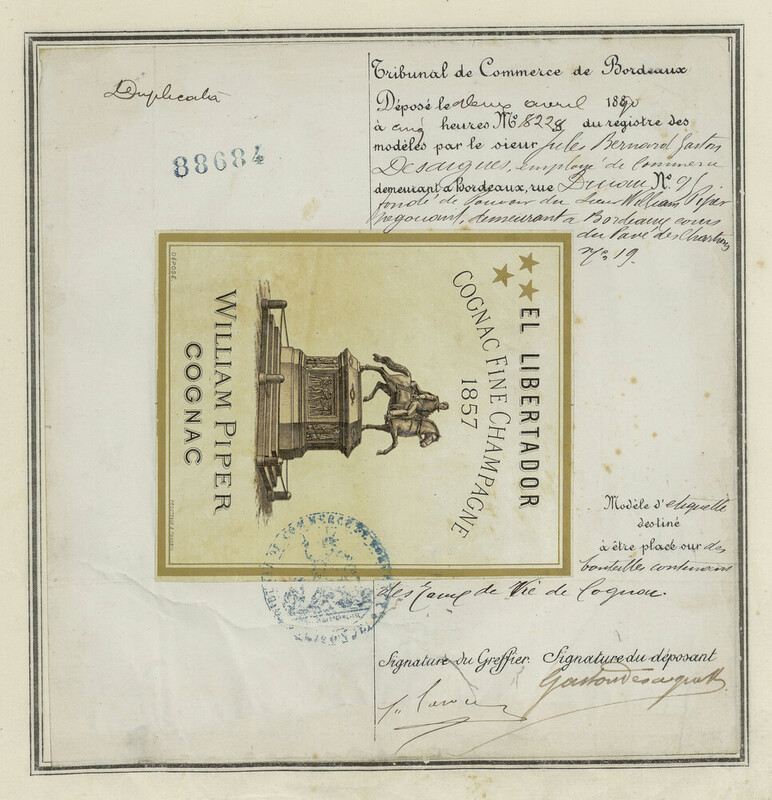 Duplicata
88684
Tribunal de Commerce de Bordeaux
Déposé le deux avril 1890
à cinq heures Nº 8228 du registre des
modèles par le sieur Jules Bernard Gaston
Desarques, employé de Commerce
demeurant à Bordeaux, rue Nº 95
fondé de Pouvoir du Sieur William Piper
négociant, demeurant à Bordeaux cours
du Pavé des Chartrons
nº 19.
EL LIBERTADOR
COGNAC FINE CHAMPAGNE
1857
WILLIAM PIPER
COGNAC
DÉPOSÉ
Modèle d'étiquette
destiné
à être placé sur des
bouteilles contenant
des Eaux de Vie de Cognac.
Signature du Greffier. Signature du déposant